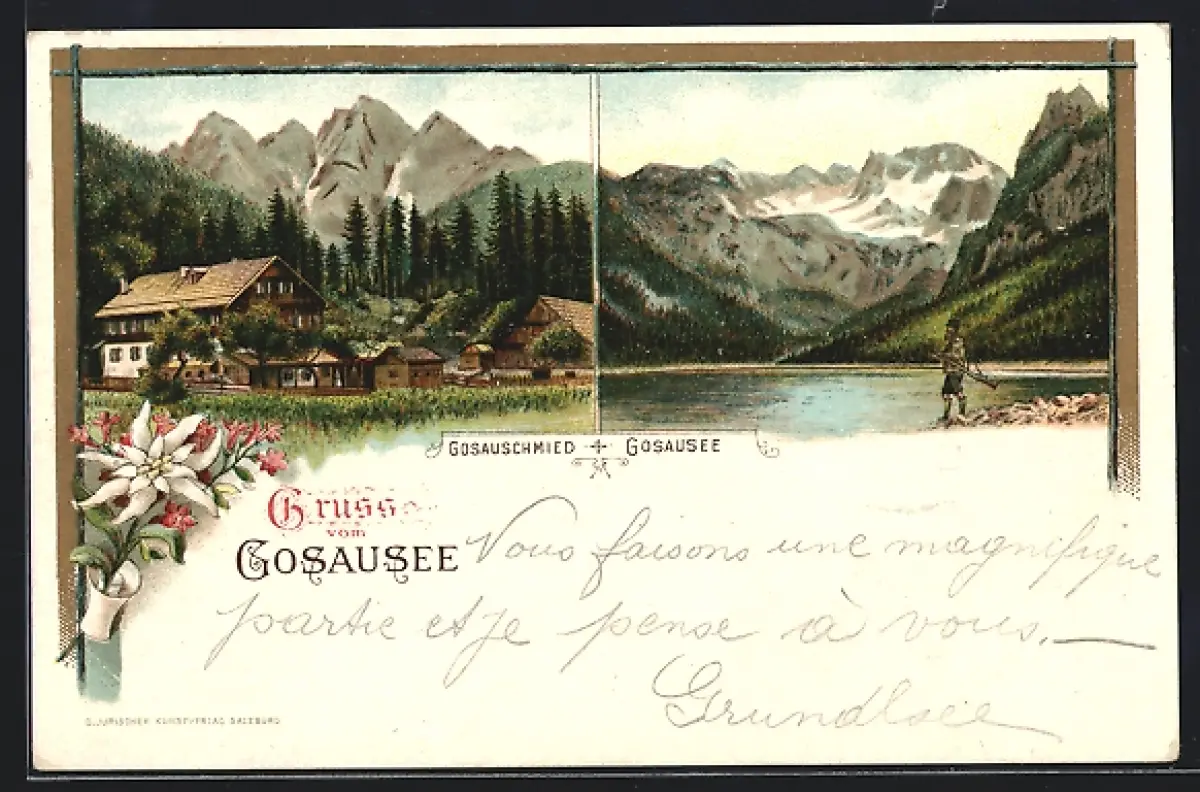 GOSAUSCHMIED GOSAUSEE
Gruss
vom
GOSAUSEE
Vous faisons une magnifique
partie et je pense à vous. —
Grundlsee
G. JURISCHEK KUNSTVERLAG SALZBURG